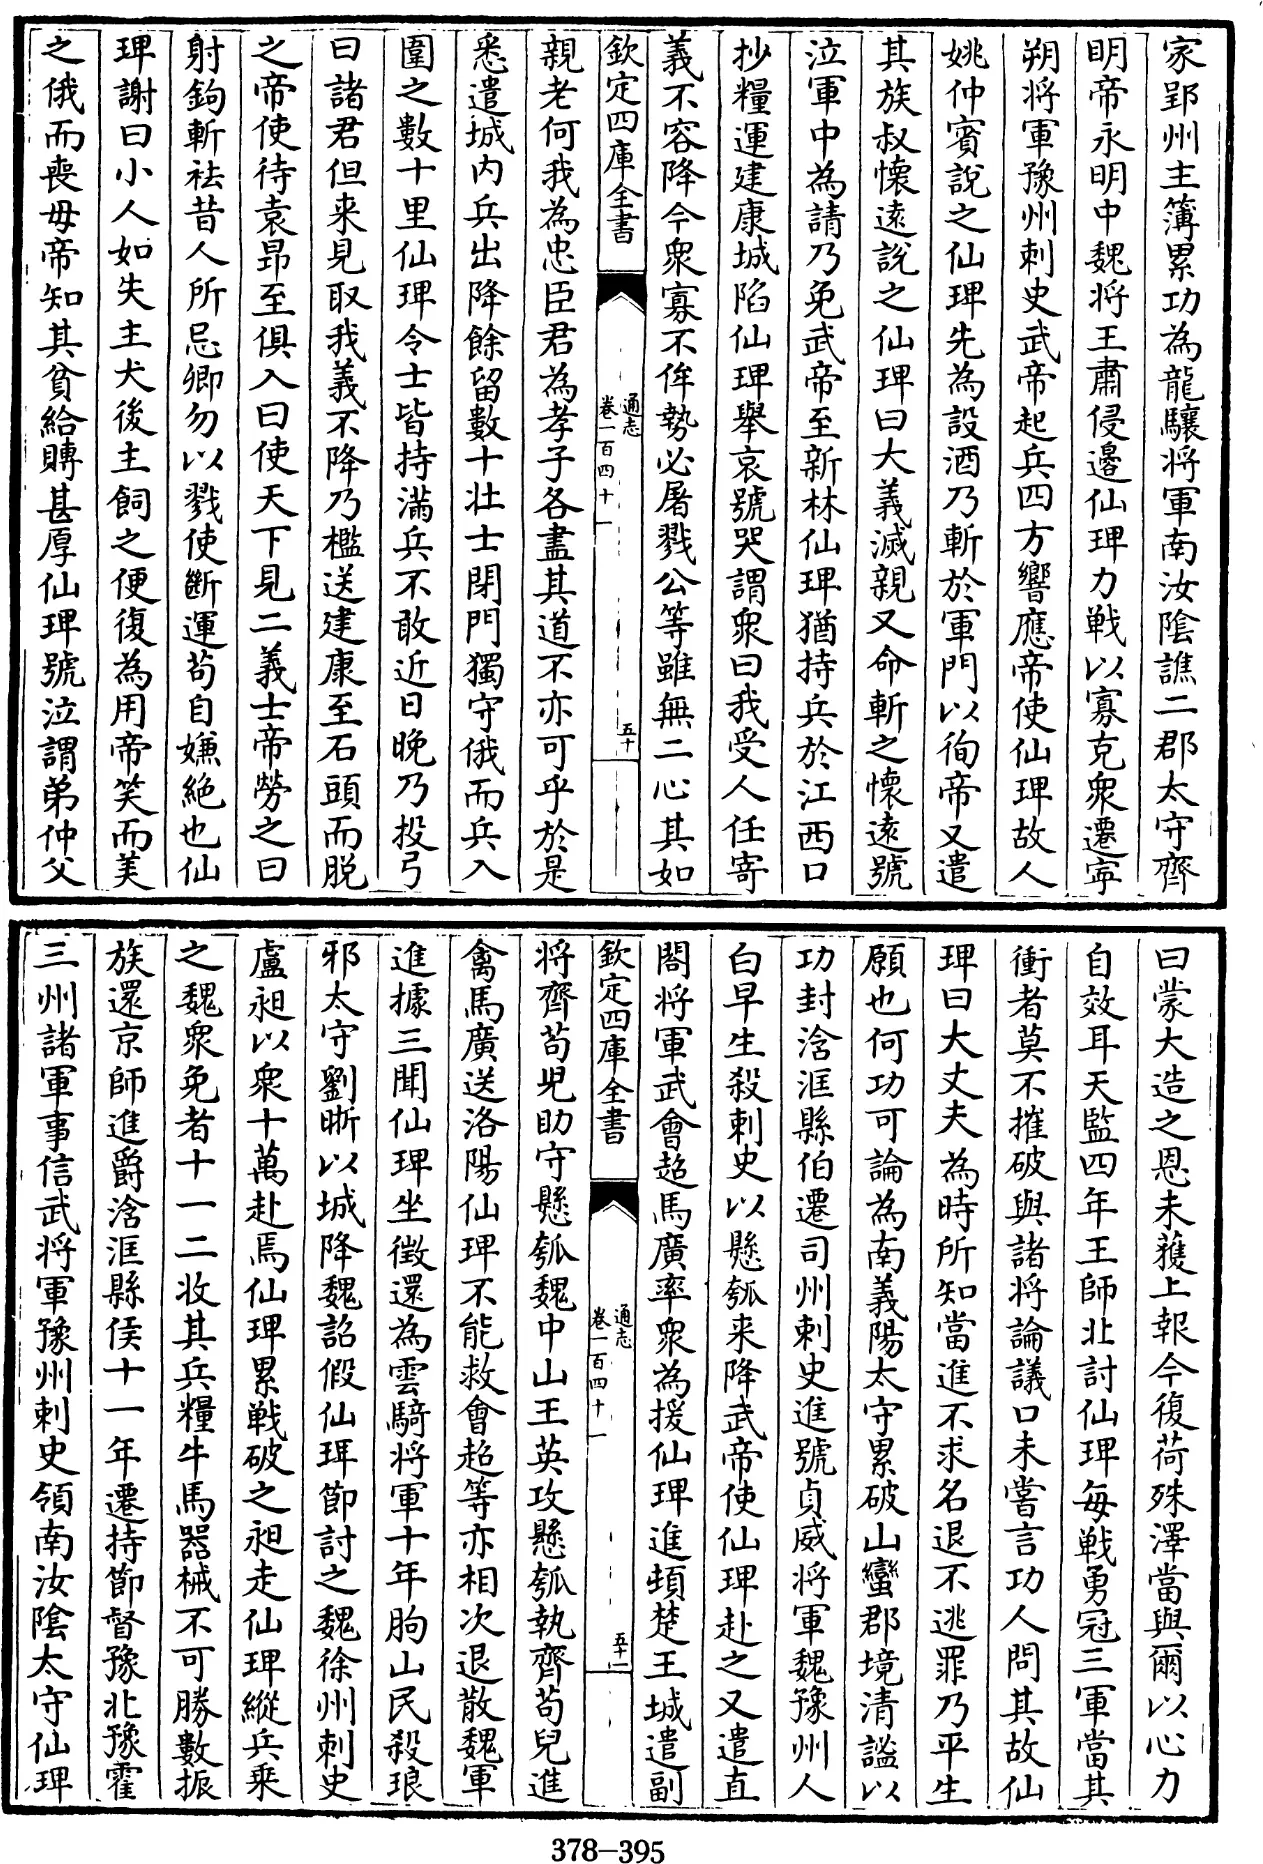 家郢州主簿累功為龍驤将軍南汝隂譙二郡太守齊
明帝永明中魏将王肅侵邊仙琕力戰以寡克衆遷寜
朔将軍豫州刺史武帝起兵四方響應帝使仙琕故人
姚仲賓說之仙琕先為設酒乃斬於軍門以徇帝又遣
其族叔懷逺說之仙琕曰大義滅親又命斬之懷逺號
泣軍中為請乃免武帝至新林仙琕猶持兵於江西口
抄糧運建康城陷仙琕舉哀號哭謂衆曰我受人任寄
義不容降今衆寡不侔勢必屠戮公等雖無二心其如
欽定四庫全書
通志
卷一百四十一
五十
親老何我為忠臣君為孝子各盡其道不亦可乎於是
悉遣城内兵出降餘留數十壯士閉門獨守俄而兵入
圍之數十里仙琕令士皆持滿兵不敢近日晚乃投弓
曰諸君但来見取我義不降乃檻送建康至石頭而脱
之帝使待袁昻至俱入曰使天下見二義士帝勞之曰
射鉤斬袪昔人所忌卿勿以戮使斷運茍自嫌絶也仙
琕謝曰小人如失主犬後主飼之便復為用帝笑而美
之俄而喪母帝知其貧給賻甚厚仙琕號泣謂弟仲父
曰蒙大造之恩未獲上報今復荷殊澤當與爾以心力
自效耳天監四年王師北討仙琕每戰勇冠三軍當其
衝者莫不摧破與諸将論議口未嘗言功人問其故仙
琕曰大丈夫為時所知當進不求名退不逃罪乃平生
願也何功可論為南義陽太守累破山蠻郡境清謐以
功封浛洭縣伯遷司州刺史進號貞威将軍魏豫州人
白早生殺刺史以懸瓠来降武帝使仙琕赴之又遣直
閤将軍武會超馬廣率衆為援仙琕進頓楚王城遣副
欽定四庫全書
通志
卷一百四十一
五十一
将齊茍兒助守懸瓠魏中山王英攻懸瓠執齊茍兒進
禽馬廣送洛陽仙琕不能救會超等亦相次退散魏軍
進據三關仙琕坐徵還為雲騎将軍十年朐山民殺琅
邪太守劉晣以城降魏詔假仙琕節討之魏徐州刺史
盧昶以衆十萬赴焉仙琕累戰破之昶走仙琕縱兵乗
之魏衆免者十一二收其兵糧牛馬器械不可勝數振
族還京師進爵浛洭縣侯十一年遷持節督豫北豫霍
三州諸軍事信武将軍豫州刺史領南汝隂太守仙琕
378–395